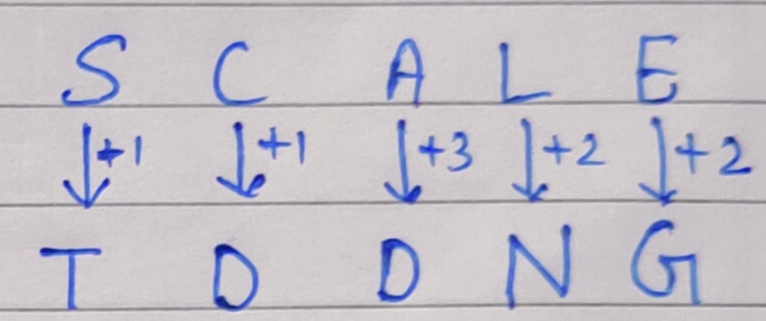 S C A L E
↓+1 ↓+1 ↓+3 ↓+2 ↓+2
T D D N G